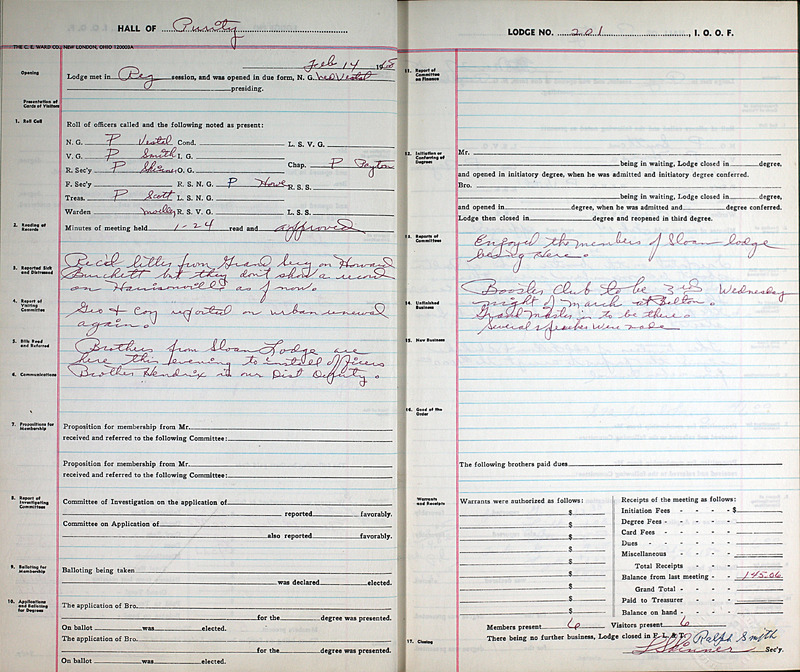 HALL OF Purity
THE C. E. WARD CO., NEW LONDON, OHIO 120003A
Feb 14 19
Opening
Lodge met in Reg session, and was opened in due form, N. G. Vestal
presiding.
Presentation of Cards of Visitors
1. Roll Call
Roll of officers called and the following noted as present:
N. G. P Vestal Cond. L. S. V. G.
V. G. P Smith I. G.
R. Sec'y P Skinner O. G. Chap. P Payton
F. Sec'y R. S. N. G. P Howe R. S. S.
Treas. P Scott L. S. N. G.
Warden Mosley R. S. V. G. L. S. S.
2. Reading of Records
Minutes of meeting held 1-24 read and approved
3. Reported Sick and Distressed
Rec'd letter from Grand Secy on Howard
Burchett but they don't show a record
on Harrisonville as of now.
4. Report of Visiting Committee
Geo & Coy reported on urban renewal
again.
5. Bills Read and Referred
Brothers from Sloan Lodge are
here this evening to install officers
6. Communications
Brother Hendrix is our Dist Deputy.
7. Propositions for Membership
Proposition for membership from Mr.
received and referred to the following Committee:
Proposition for membership from Mr.
received and referred to the following Committee:
8. Report of Investigating Committees
Committee of Investigation on the application of
reported favorably.
Committee on Application of
also reported favorably.
9. Balloting for Membership
Balloting being taken
was declared elected.
10. Applications and Balloting for Degrees
The application of Bro.
for the degree was presented.
On ballot was elected.
The application of Bro.
for the degree was presented.
On ballot was elected.
LODGE NO. 201, I. O. O. F.
11. Report of Committee on Finance
12. Initiation or Conferring of Degrees
Mr.
being in waiting, Lodge closed in degree,
and opened in initiatory degree, when he was admitted and initiatory degree conferred.
Bro.
being in waiting, Lodge closed in degree,
and opened in degree, when he was admitted and degree conferred.
Lodge then closed in degree and reopened in third degree.
13. Reports of Committees
Enjoyed the members of Sloan lodge
being here.
14. Unfinished Business
Booster Club to be 3rd Wednesday
night of March at Belton.
Grand Master is to be there.
Several speeches were made
15. New Business
16. Good of the Order
The following brothers paid dues
Warrants and Receipts
Warrants were authorized as follows:
$
$
$
$
$
$
$
$
$
Receipts of the meeting as follows:
Initiation Fees - - - - $
Degree Fees - - - - -
Card Fees - - - - -
Dues - - - - - -
Miscellaneous - - - - -
Total Receipts
Balance from last meeting - - 145.06
Grand Total - - -
Paid to Treasurer - - - -
Balance on hand - - - -
Members present 6 Visitors present 6
17. Closing
There being no further business, Lodge closed in F. L. & T. Ralph Smith
L Skinner Sec'y.